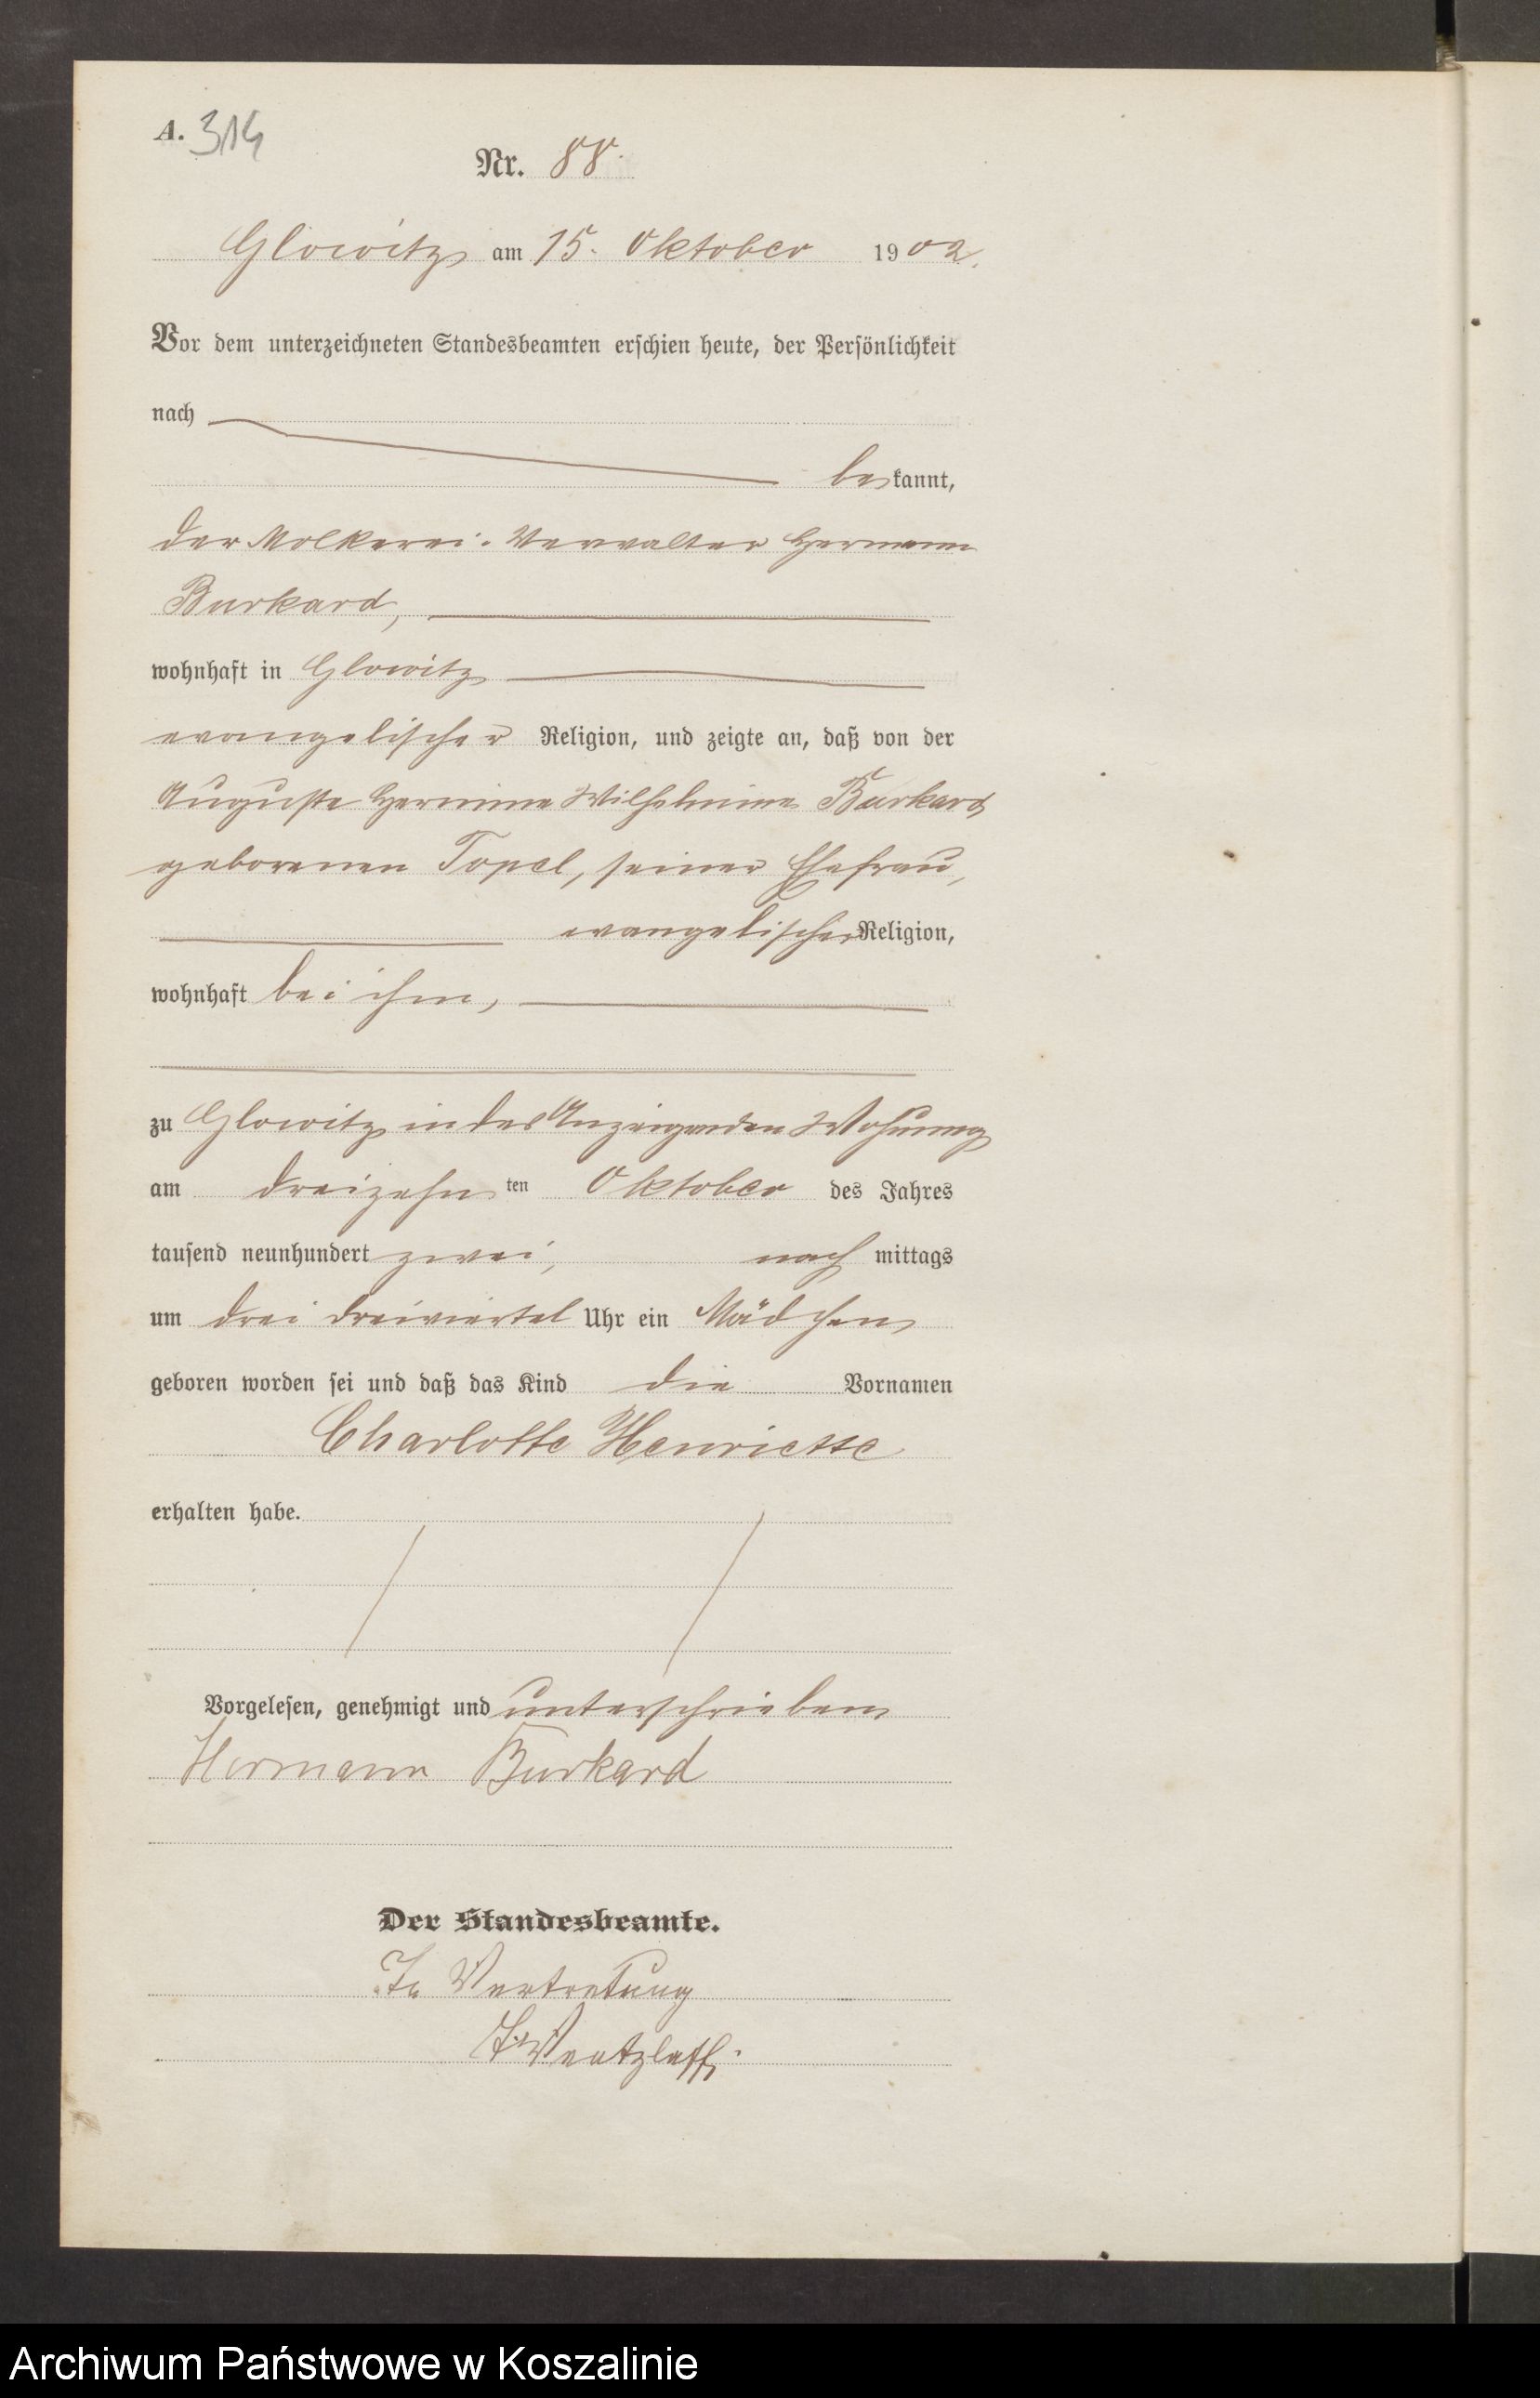 A. 314
Nr. 88.
Glowitz am 15. Oktober 1902.
Vor dem unterzeichneten Standesbeamten erschien heute, der Persönlichkeit
nach
bekannt,
der Molkerei-Verwalter Hermann
Burkard,
wohnhaft in Glowitz
evangelischer Religion, und zeigte an, daß von der
Auguste Hermine Wilhelmine Burkard
geborenen Topel, seiner Ehefrau,
evangelischer Religion,
wohnhaft bei ihm,
zu Glowitz in des Anzeigenden Wohnung
am dreizehnten Oktober des Jahres
tausend neunhundert zwei, nachmittags
um drei dreiviertel Uhr ein Mädchen
geboren worden sei und daß das Kind die Vornamen
Charlotte Henriette
erhalten habe.
Vorgelesen, genehmigt und unterschrieben
Hermann Burkard
Der Standesbeamte.
In Vertretung
Archiwum Państwowe w Koszalinie